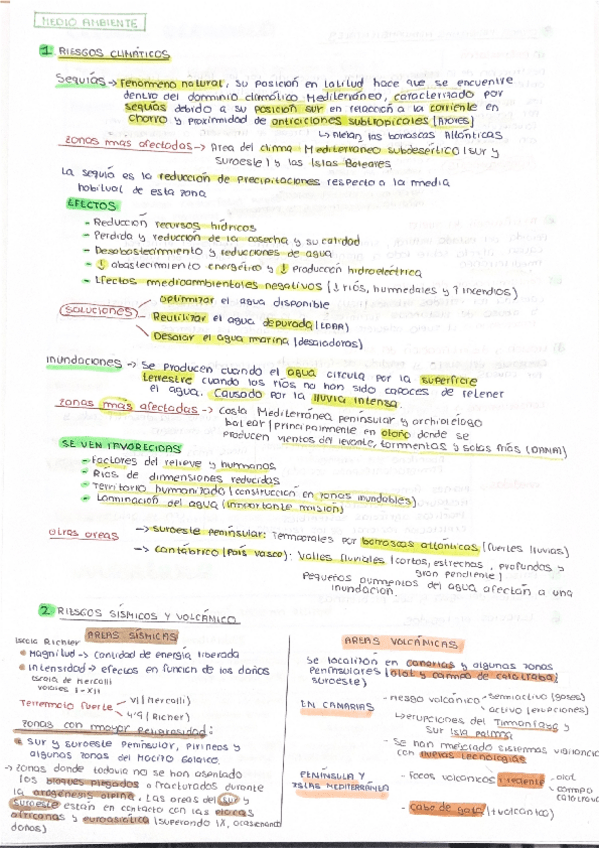 MEDIO AMBIENTE
1 RIESGOS CLIMÁTICOS
Sequías → Fenomeno natural, su posición en latitud hace que se encuentre
dentro del dominio climático Mediterráneo, caracterizado por
sequías debido a su posición sur en relación a la corriente en
chorro y proximidad de anticiclones subtropicales (Azores)
↳ Alejan las borrascas Atlánticas
zonas mas afectadas → Area del clima Mediterraneo subdesértico (sur y
suroeste) y las Islas Baleares
La sequía es la reducción de precipitaciones respecto a la media
habitual de esta zona
EFECTOS
- Reducción recursos hídricos
- Perdida y reducción de la cosecha y su calidad
- Desabastecimiento y reducciones de agua
- ↓ abastecimiento energético y ↓ Producción hidroeléctrica
- Efectos medioambientales negativos (↓ ríos, humedales y ↑ incendios)
SOLUCIONES
Optimizar el agua disponible
Reutilizar el agua depurada (EDAR)
Desalar el agua marina (desaladoras)
Inundaciones → Se Producen cuando el agua circula por la superficie
terrestre cuando los ríos no han sido capaces de retener
el agua. Causado por la lluvia intensa.
zonas mas afectadas → Costa Mediterránea peninsular y archipiélago
balear (principalmente en otoño donde se
producen vientos del levante, tormentas y gotas frías (DANA))
SE VEN FAVORECIDAS
- Factores del relieve y humanos
- Ríos de dimensiones reducidas
- Territorio humanizado (construcción en zonas inundables)
- Laminación del agua (importante misión)
otras areas → suroeste peninsular: Temporales por borrascas atlánticas (fuertes lluvias)
→ Cantábrico (País Vasco): Valles fluviales (cortos, estrechos, profundos y
gran pendiente)
Pequeños aumentos del agua afectan a una
inundación.
2 RIESGOS SÍSMICOS Y VOLCÁNICO
AREAS SÍSMICAS
Escala Richter
Magnitud → cantidad de energía liberada
Intensidad → efectos en función de los daños
Escala de Mercalli
valores I - XII
Terremoto fuerte
VI (Mercalli)
4'9 (Richer)
zonas con mayor peligrosidad:
Sur y suroeste Peninsular, pirineos y
algunas zonas del Macizo Galaico.
→ zonas donde todavía no se han asentado
los bloques plegados o fracturados durante
la orogénesis alpina. Las areas del sur y
suroeste están en contacto con las placas
africanas y euroasiática (superando IX, ocasionando
daños)
AREAS VOLCÁNICAS
Se localizan en canarias y algunas zonas
Peninsulares (olot y campo de calatraba;
suroeste)
EN CANARIAS
- riesgo volcánico
- semiactivo (gases)
- activo (erupciones)
↳ erupciones del Timanfaya y
Sur isla palma
- Se han mejorado sistemas vigilancia
con nuevas tecnologías
PENÍNSULA Y
ISLAS MEDITERRÁNEA
- focos volcánicos reciente
- olot
- campo
calatrava
- cabo de gata (+volcánico)